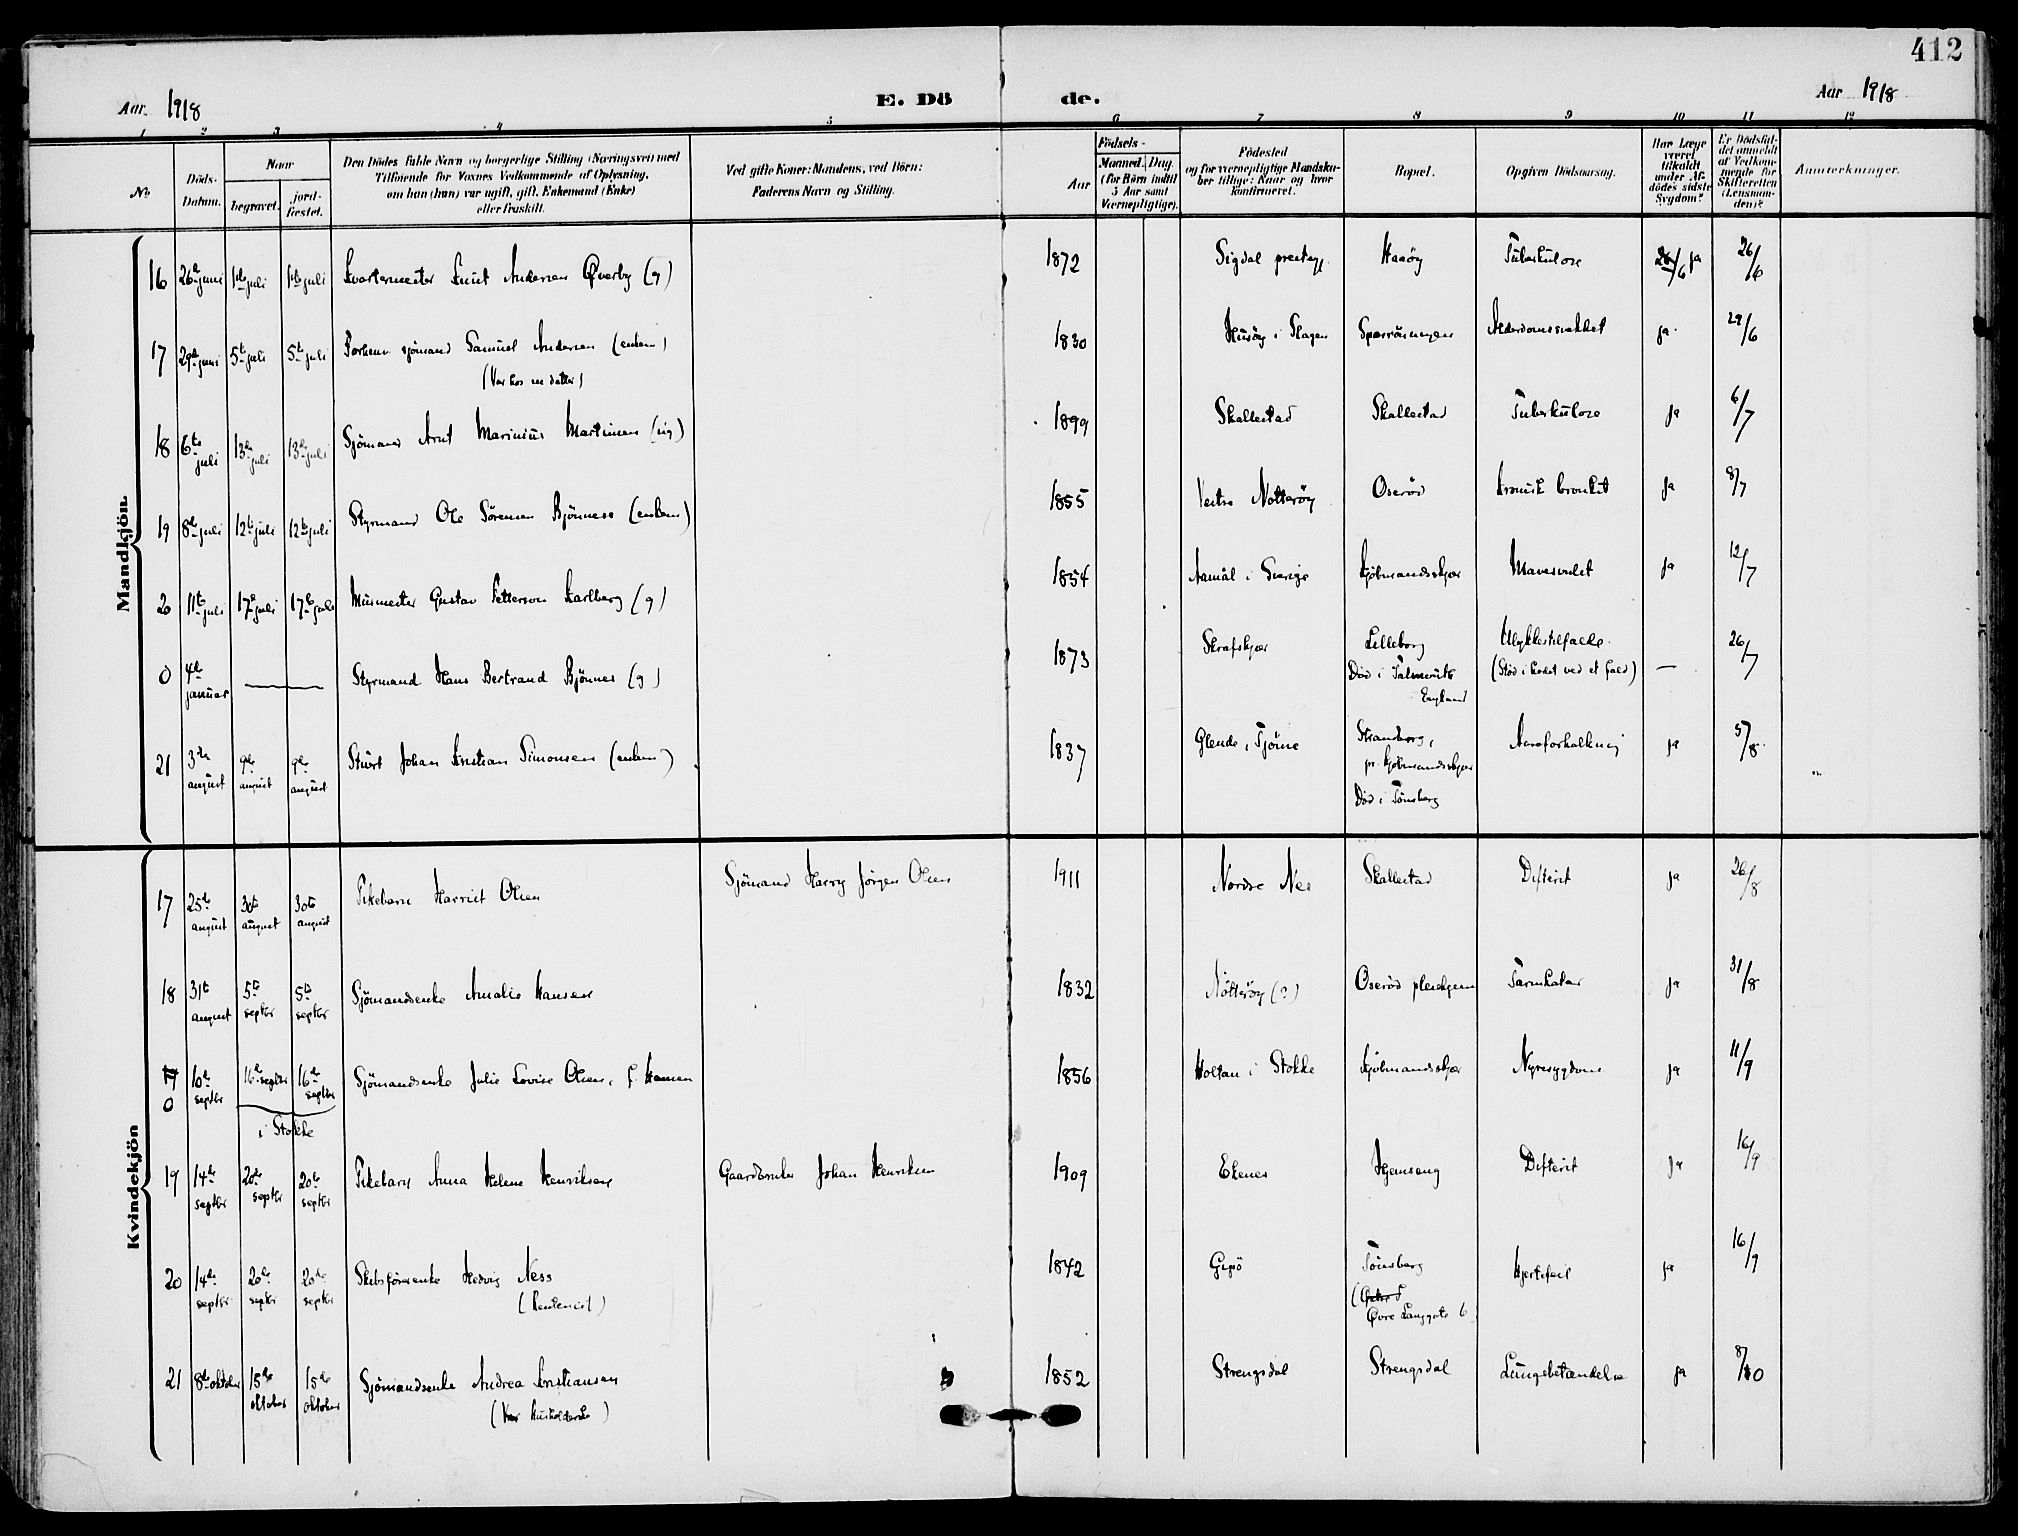 412
Aar 1918 E. Dö de. Aar 1918
1 2 3 4 5 6 7 8 9 10 11 12
No.
Döds-Datum.
Naar
begravet.
jord-fæstet.
Den Dödes fulde Navn og borgerlige Stilling (Næringsvei) med
Tilföiende for Voxnes Vedkommende af Oplysning,
om han (hun) var ugift, gift, Enkemand (Enke)
eller fraskilt.
Ved gifte Koner: Mandens, ved Börn:
Faderens Navn og Stilling.
Födsels-
Aar
Maaned. Dag.
(for Börn indtil
5 Aar samt
Værnepligtige).
Födested
og for værnepligtige Mandska-
ber tillige: Naar og hvor
konfirmeret.
Bopæl.
Opgiven Dödsaarsag.
Har Læge
været
tilkaldt
under Af-
dödes sidste
Sygdom?
Er Dödsfal-
det anmeldt
af Vedkom-
mende for
Skifteretten
(Lensman-
den)?
Anmærkninger.
Mandkjön.
16 26de juni 1ste juli 1ste juli Kvartermester Knut Andersen Qverby (g) 1872 Sigdal prestegj. Haaöy Tuberkulose 26/6 ja 26/6
17 29de juni 5te juli 5te juli Forhenv. sjömand Samuel Andersen (enkem) 1830 Husöy i Slagen Alderdomssvakhet ja 29/6
(Var hos en datter)
18 6te juli 13de juli 13de juli Sjömand Arnt Marinius Martinsen (ug) 1899 Skallestad Skallestad Tuberkulose ja 6/7
19 8de juli 12te juli 12te juli Styrmand Ole Sörensen Bjönness (enkem) 1855 Vestre Nötteröy Oseröd Kronisk bronkit ja 8/7
20 11te juli 17de juli 17de juli Murmester Gustav Petterson Karlberg (g) 1854 Aamål i Sverige Kjöbmandsskjær Mavesvulst ja 12/7
0 4de januar — Styrmand Hans Bertrand Bjönnes (g) 1873 Skrafskjær Lilleborg Ulykkestilfælde. — 26/7
Död i Falmouth England (Stöd i hodet ved et fald)
21 3dje august 9de august 9de august Johan Kristian Simonsen (enkem) 1837 Glende i Tjöme Strandborg, Aareforkalkning ja 5/8
pr. Kjöbmandsskjær
Död i Tönsberg
Kvindekjön
17 25de august 30te august 30te august Pikebarn Harriet Olsen Sjömand Harry Jörgen Olsen 1911 Nordre Nes Skallestad Difterit ja 26/8
18 31te august 5te septbr 5te septbr Sjömandsenke Amalie Hansen 1832 Nötteröy (?) Oseröd pleiehjem Tarmkatar ja 31/8
19 0 10de septbr 16de septbr 16de septbr Sjömandsenke Julie Lovise Olsen, f. Hansen 1856 Holtan i Stokke Kjöbmandsskjær Nyresygdom ja 11/9
i Stokke
19 14de septbr 20de septbr 20de septbr Pikebarn Anna Helene Henriksen Gaardbruker Johan Henriksen 1909 Ekenes Hjemseng Difterit ja 16/9
20 14de septbr 20de septbr 20de septbr Skibsförerenke Hedvig Ness 1842 Gipö Tönsberg Hjertefeil ja 16/9
(Rentenist) Övre Langgate 6)
21 8de oktober 15de oktober 15de oktober Sjömandsenke Andrea Kristiansen 1852 Strengsdal Strengsdal Lungebetændelse ja 8/10
(Var husholderske)